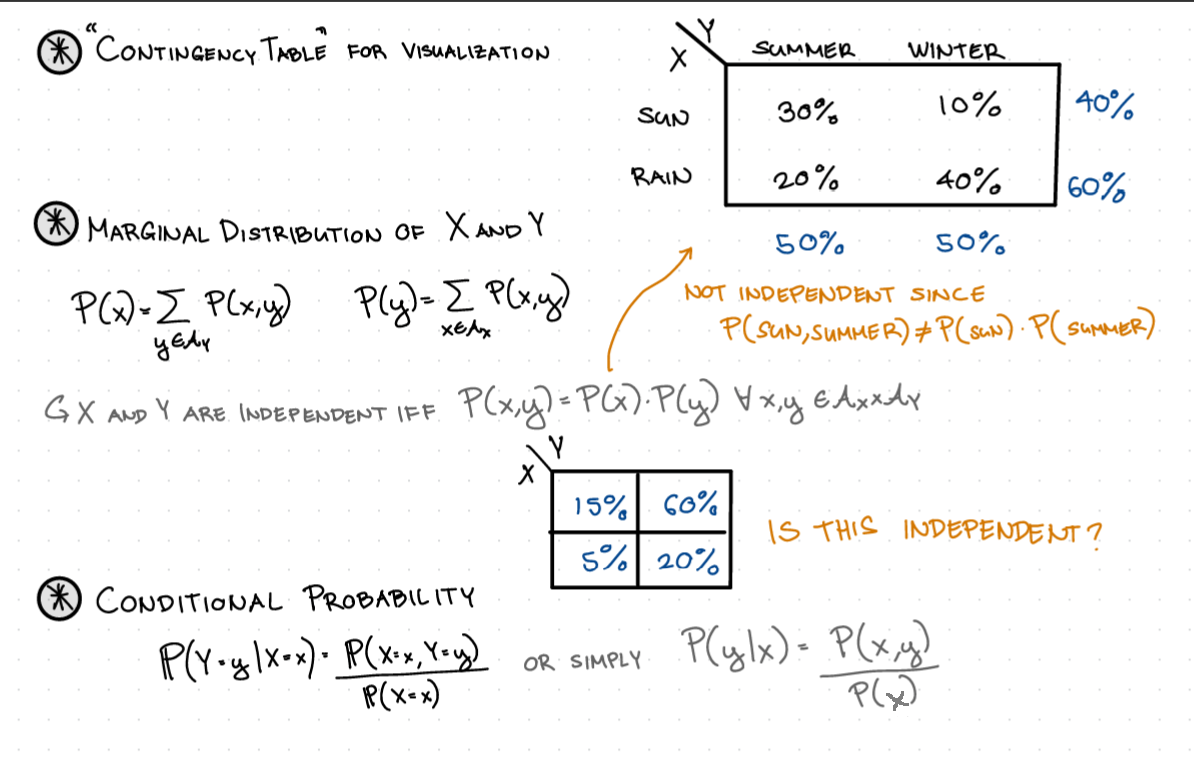 ⊛ "CONTINGENCY TABLE" FOR VISUALIZATION
X Y SUMMER WINTER
SUN 30% 10% 40%
RAIN 20% 40% 60%
50% 50%
⊛ MARGINAL DISTRIBUTION OF X AND Y
P(x)=∑ P(x,y) P(y)=∑ P(x,y)
y∈𝒜Y x∈𝒜X
NOT INDEPENDENT SINCE
P(SUN,SUMMER)≠P(SUN)·P(SUMMER)
↳ X AND Y ARE INDEPENDENT IFF P(x,y)=P(x)·P(y) ∀x,y ∈𝒜X×𝒜Y
X Y
15% 60%
5% 20%
IS THIS INDEPENDENT?
⊛ CONDITIONAL PROBABILITY
ℙ(Y=y|X=x)= ℙ(X=x,Y=y) / ℙ(X=x) OR SIMPLY P(y|x)= P(x,y) / P(x)